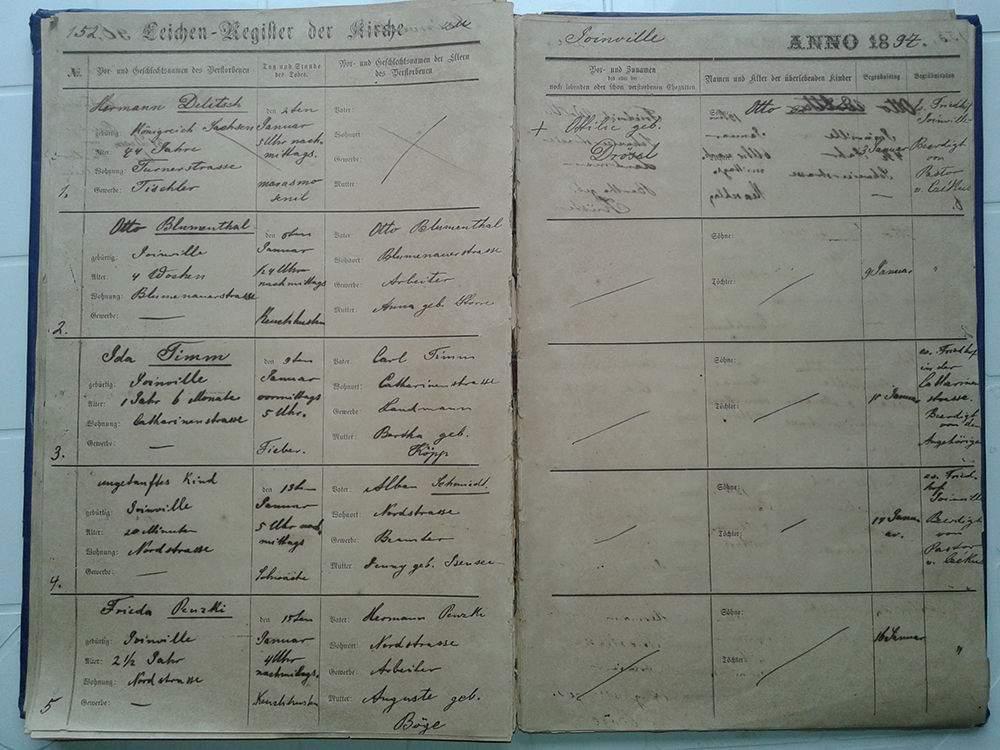 152.
Leichen-Register der Kirche zu
Joinville
ANNO 1894.
№.
Vor- und Geschlechtsnamen des Verstorbenen
Tag und Stunde
des Todes.
Vor- und Geschlechtsnamen der Eltern
des Verstorbenen
Vor- und Zunamen
noch lebenden oder schon verstorbenen Ehegatten
Namen und Alter der überlebenden Kinder
Begräbnißtag
Begräbnißplatz
1.
Hermann Delitsch
gebürtig: Königreich Sachsen
Alter: 44 Jahre
Wohnung: Turnerstrasse
Gewerbe: Tischler
den 2ten
Januar
5 Uhr nach-
mittags.
marasmo
senil
Vater:
Wohnort
Gewerbe:
Mutter
+ Ottilie geb.
Drössl
Otto
3 Januar
Friedhof
Joinville
Beerdigt
von
Pastor
2.
Otto Blumenthal
gebürtig: Joinville
Alter: 4 Wochen
Wohnung: Blumenauerstrasse
Gewerbe: —
den 8ten
Januar
½4 Uhr
nachmittags
Keuchhusten
Vater Otto Blumenthal
Wohnort Blumenauerstrasse
Gewerbe: Arbeiter
Mutter: Anna geb.
Söhne:
Töchter:
9 Januar
"
3.
Ida Timm
gebürtig: Joinville
Alter: 1 Jahr 6 Monate
Wohnung: Catharinenstrasse
Gewerbe: —
den 9ten
Januar
vormittags
5 Uhr.
Fieber.
Vater: Carl Timm
Wohnort: Catharinenstrasse
Gewerbe: Landmann
Mutter: Bertha geb.
Köpp
Söhne:
Töchter:
Januar
ev. Friedhof
in der
Catharinen
strasse.
Beerdigt
von den
Angehörigen
4.
ungetauftes Kind
gebürtig: Joinville
Alter: 20 Minuten
Wohnung: Nordstrasse
Gewerbe: —
den 13ten
Januar
5 Uhr nach-
mittags
Schwäche
Vater: Alban Schmidt
Wohnort: Nordstrasse
Gewerbe: Beamter
Mutter Jenny geb. Isensee
Söhne:
Töchter:
Januar
ev. Fried-
hof
Joinville
Beerdigt
von
Pastor
5
Frieda Penzki
gebürtig: Joinville
Alter: 2½ Jahr
Wohnung: Nordstrasse
Gewerbe: —
den 15ten
Januar
4 Uhr
nachmittags.
Keuchhusten
Vater Hermann Penzke
Wohnort: Nordstrasse
Gewerbe: Arbeiter
Mutter: Auguste geb.
Böge
Söhne:
Töchter:
16 Januar
"